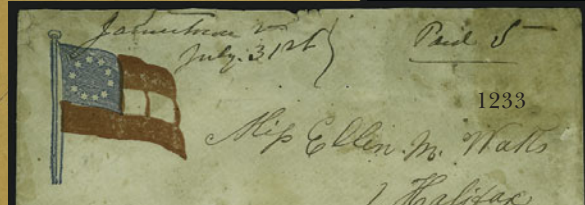 Jamestown Va
July. 31st
Paid 5
1233
Miss Ellen. M. Watts
Halifax